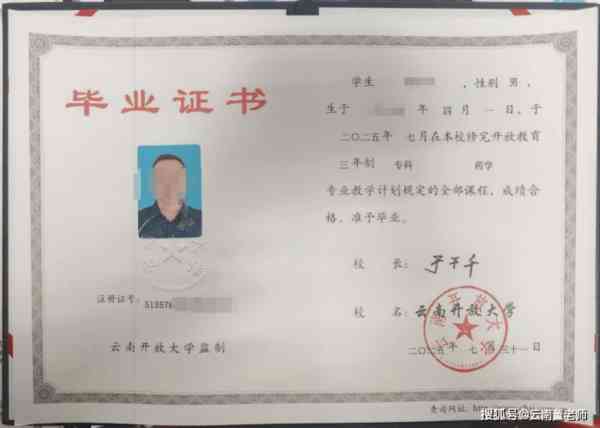 毕业证书
学生 ，性别 男，
生于 年 四月 一日，于
二〇二五年 七月在本校修完开放教育
三年制 专科 药学
专业教学计划规定的全部课程，成绩合
格，准予毕业。
校 长：
校 名：云南开放大学
二〇二五年 七月三十一日
注册证号：51357
云南开放大学监制
查询网址：http
搜狐号@云南董老师